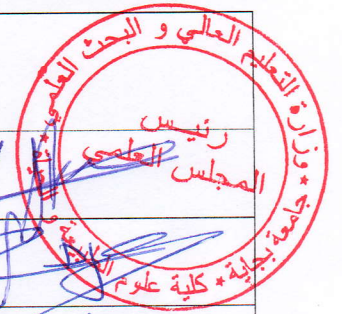 وزارة التعليم العالي و البحث العلمي
جامعة بجاية * كلية علوم الطبيعة و
رئيس
المجلس العلمي